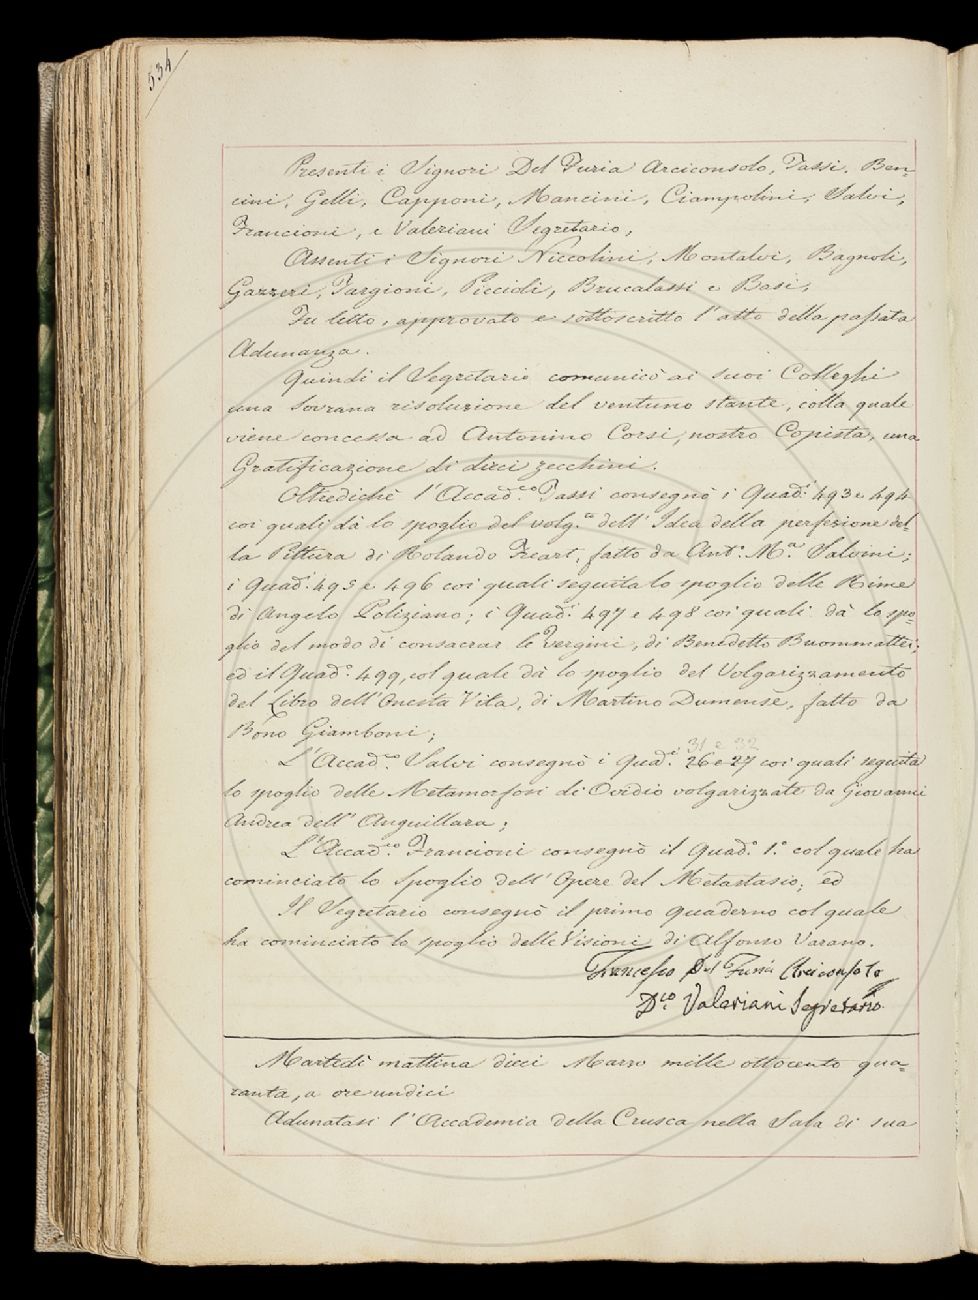 534
Presenti i Signori Del Furia Arciconsolo, Tassi, Ben-
cini, Gelli, Capponi, Mancini, Ciampolini, Salvi,
Francioni, e Valeriani Segretario;
Assenti i Signori Niccolini, Montalvi, Bagnoli,
Gazzeri, Targioni, Piccioli, Brucalassi e Basi;
Fu letto, approvato e sottoscritto l'atto della passata
Adunanza.
Quindi il Segretario comunicò ai suoi Colleghi
una Sovrana risoluzione del ventuno stante, colla quale
viene concessa ad Antonino Corsi, nostro Copista, una
Gratificazione di dieci zecchini.
Oltredichè l'Accad.co Tassi consegnò i Quad.i 493 e 494
coi quali dà lo spoglio del volg.to dell'Idea della perfezione del-
la Pittura di Rolando Freart, fatto da Ant.o M.a Salvini;
i Quad.i 495 e 496 coi quali seguita lo spoglio delle Rime
di Angelo Poliziano; i Quad.i 497 e 498 coi quali dà lo spo-
glio del modo di consacrar le Vergini, di Benedetto Buommattei;
ed il Quad.o 499, col quale dà lo spoglio del Volgarizzamento
del Libro dell'Onesta Vita, di Martino Dumense, fatto da
Bono Giamboni;
31 e 32
L'Accad.co Salvi consegnò i Quad.i 26 e 27 coi quali seguita
lo spoglio delle Metamorfosi di Ovidio volgarizzate da Giovanni
Andrea dell'Anguillara;
L'Accad.co Francioni consegnò il Quad.o 1.o col quale ha
cominciato lo Spoglio dell'Opere del Metastasio; ed
Il Segretario consegnò il primo quaderno col quale
ha cominciato lo spoglio delle Visioni di Alfonso Varano.
Francesco Del Furia Arciconsolo
D.co Valeriani Segretario
Martedì mattina dieci Marzo mille ottocento qua-
ranta, a ore undici
Adunatasi l'Accademia della Crusca nella Sala di sua